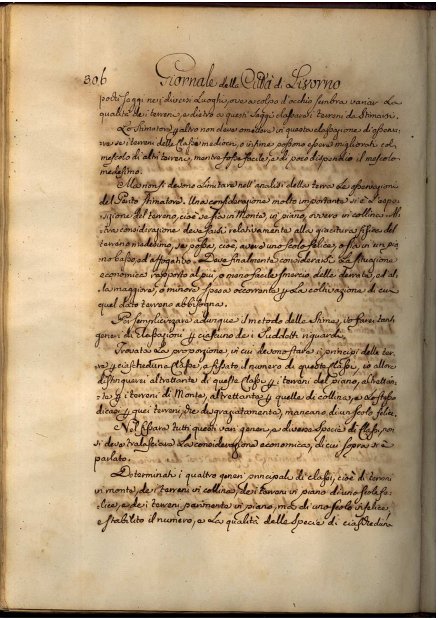 306 Giornale della Città di Livorno
posti saggi nei diversi Luoghi, ove a colpo d'occhio sembra variar La
qualità dei terreni, e dietro a questi saggi classare i terreni da Stimarsi.
Lo Stimatore altro non deve omettere in questa classazione di osservare
se i terreni della Classe mediocri, o infime possono essere migliorati col
mescolo di altri terreni, mentre fosse facile, e di poco dispendio il mescolo
medesimo.
Ma non si devono Limitare nell'analisi della terra Le operazioni
del Perito Stimatore. Una considerazione molto importante si è L'espo-
sizione del terreno, cioè se sia in Monte, in piano, ovvero in collina. Al-
tra considerazione deve farsi relativamente alla giacitura fisica del
terreno medesimo, se possa, cioè, avere uno scolo felice, o sia in un pia-
no basso, ed affogativo. Deve finalmente considerarsi La situazione
economica rapporto al più, o meno facile smercio delle derrate, ed al-
la maggiore, o minore spesa occorrente La coltivazione di cui
quel dato terreno abbisogna.
Per semplicizzare adunque il metodo delle Stime, vorrei tanti
generi di classazioni ciascuno dei Suddetti riguardi.
Trovata La proporzione in cui devono stare i principj delle ter-
re ciascheduna Classe, e fissato il numero di queste Classi, io allora
distinguerei altrettante di queste Classi i terreni del piano, altrettan-
te i terreni di Monte, altrettante quelle di collina, e Lo stesso
dicasi quei terreni, che disgraziatamente, mancano di uno scolo felice.
Nel fissare tutti questi vari generi, e diverse Specie di Classi, non
si deve tralasciare La considerazione economica, di cui sopra si è
parlato.
Determinati i quattro generi principali di classi, cioè di terreni
in monte, dei terreni in collina, dei terreni in piano di uno scolo fe-
lice, e dei terreni parimente in piano, mà di uno scolo infelice,
e stabilito il numero, e La qualità delle Specie di ciaschedun